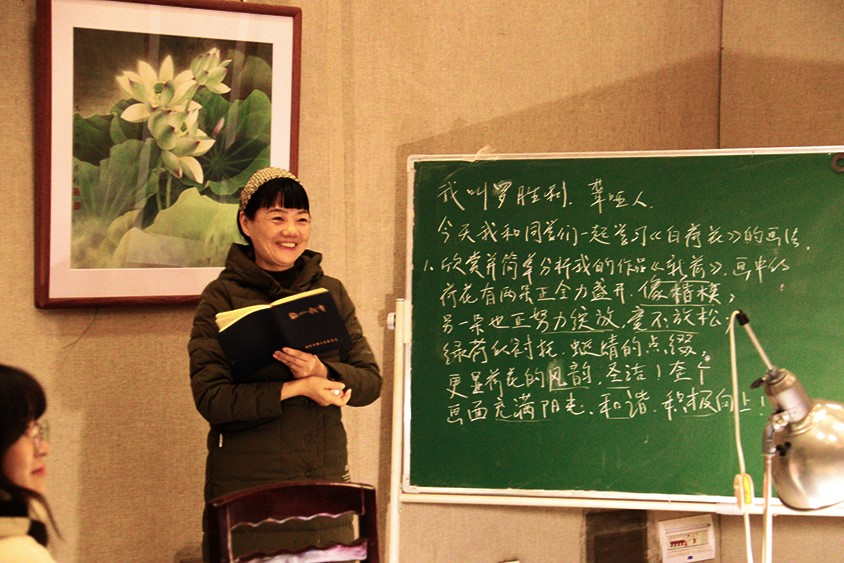 我叫罗胜利.聋哑人.
今天我和同学们一起学习《白荷花》的画法.
1.欣赏并简单分析我的作品《乳荷》.画中的
荷花有两朵正全力盛开.像楷模;
另一朵也正努力绽放.毫不放松;
绿荷叶衬托.蜓蜻的点缀.
更显荷花的风韵.圣洁!整个
画面充满阳光、和谐.积极向上!